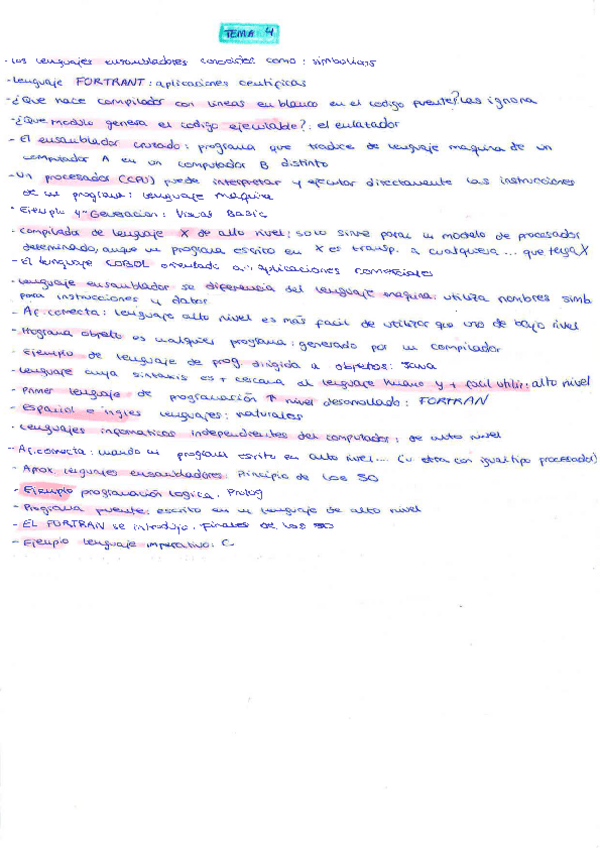 TEMA 4
· Los lenguajes ensambladores conocidos como: simbolicos
- Lenguaje FORTRANT: aplicaciones cientificas
- ¿Que hace compilador con lineas en blanco en el codigo fuente? Las ignora
- ¿Que modulo genera el codigo ejecutable?: el enlazador
- El ensamblador cruzado: programa que traduce de lenguaje maquina de un
computador A en un computador B distinto
- Un procesador (CPU) puede interpretar y ejecutar directamente las instrucciones
de un programa: lenguaje maquina
· Ejemplo 4ª Generacion: Visual Basic
- Compilador de lenguaje X de alto nivel: solo sirve para un modelo de procesador
determinado, aunque un programa escrito en X es transp. a cualquiera ... que tenga X
- El lenguaje COBOL orientado a: aplicaciones comerciales
· Lenguaje ensamblador se diferencia del lenguaje maquina: utiliza nombres simb
para instrucciones y datos
- Af. correcta: lenguaje alto nivel es más facil de utilizar que uno de bajo nivel
- Programa objeto es cualquier programa: generado por un compilador
- Ejemplo de lenguaje de prog. dirigida a objetos: Java
- Lenguaje cuya sintaxis es + cercana al lenguaje humano y + facil utiliz: alto nivel
- Primer lenguaje de programación ↑ nivel desarrollado: FORTRAN
- Español e ingles lenguajes: naturales
· Lenguajes informaticos independientes del computador: de alto nivel
- Af. correcta: cuando un programa escrito en alto nivel.... (u otra con igual tipo procesador)
- Apar. lenguajes ensambladores: Principio de los 50
- Ejemplo programación logica: Prolog
- Programa fuente: escrito en un lenguaje de alto nivel
- EL FORTRAN se introdujo: Finales de los 50
- Ejemplo lenguaje imperativo: C